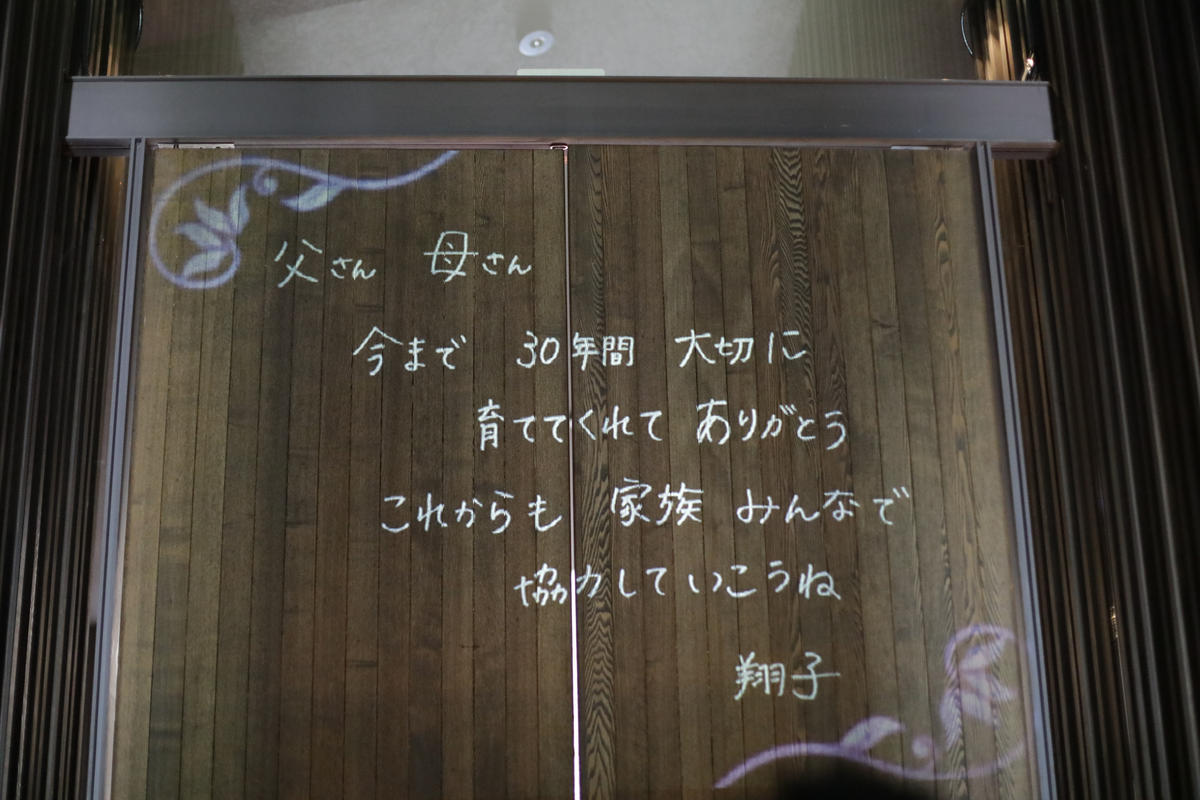 父さん 母さん
今まで 30年間 大切に
育ててくれて ありがとう
これからも 家族 みんなで
協力していこうね
翔子